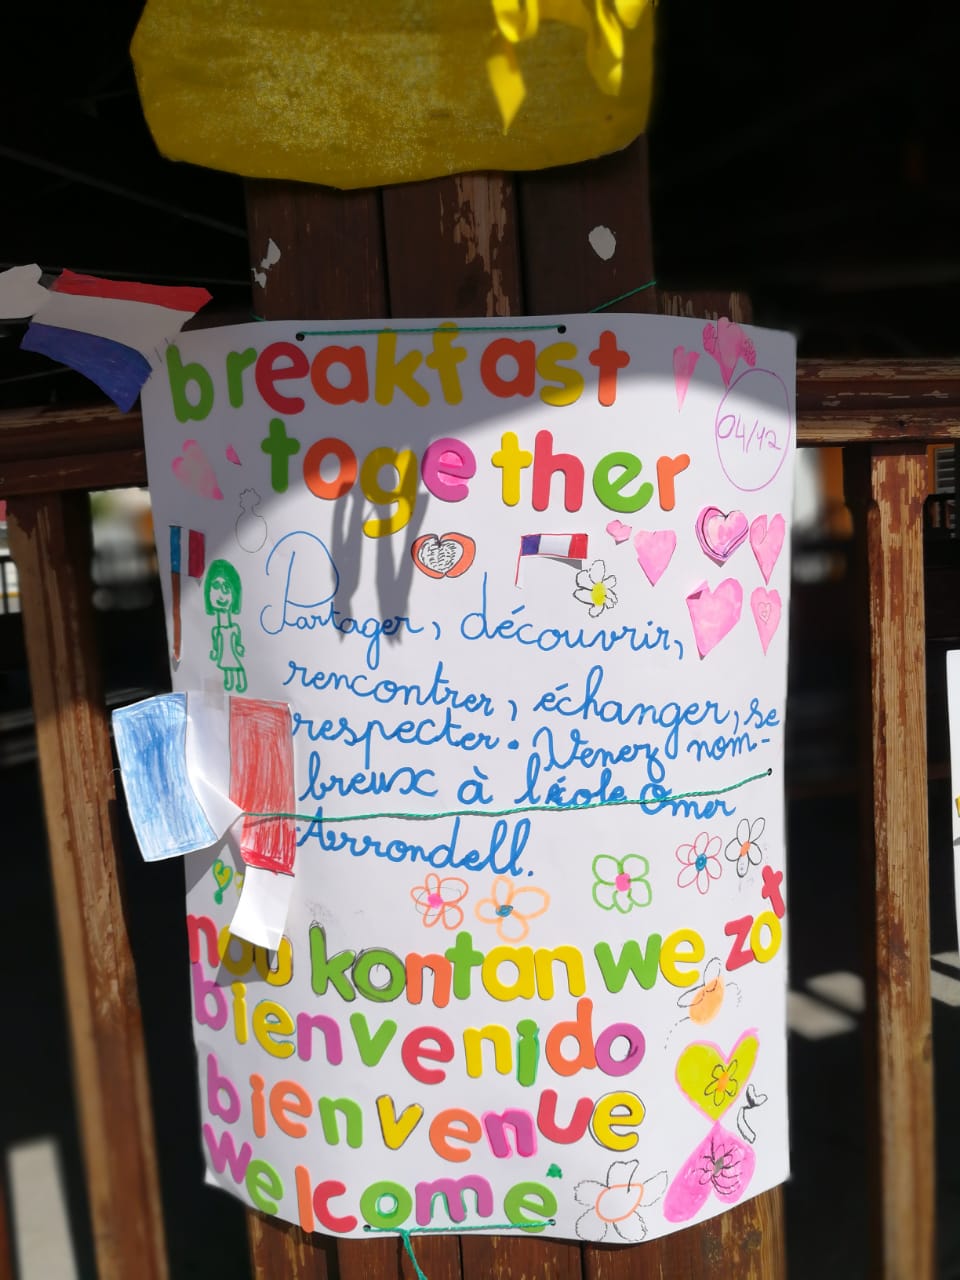 breakfast
together
04/12
Partager, découvrir,
rencontrer, échanger, se
respecter. Venez nom-
breux à l'école Omer
Arrondell.
nou kontan we zot
bienvenido
bienvenue
welcome